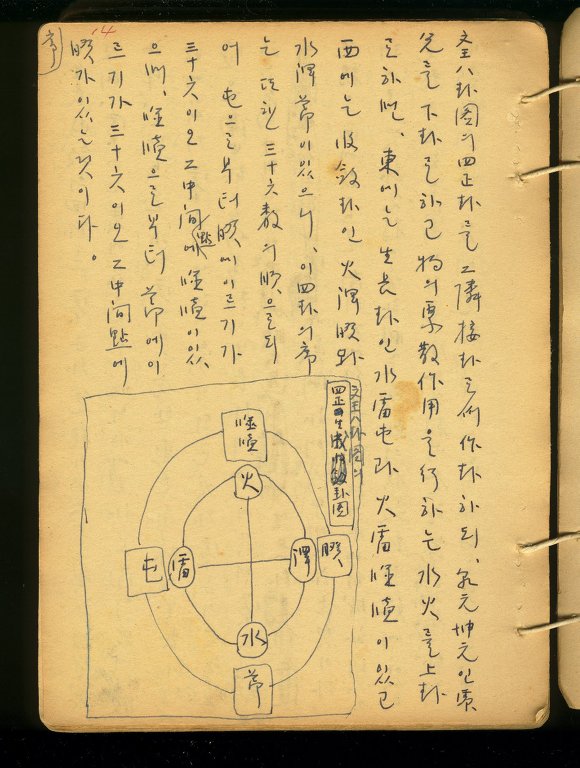 文王八卦圖의 四正卦를 그 隣接卦로서 作卦하되, 乾元坤元인 震
兌를 下卦로 하고 物의 聚散作用을 行하는 水火를 上卦
로 하면, 東에는 生長卦인 水雷屯과 火雷噬嗑이 있고
西에는 收斂卦인 火澤睽와
水澤節이 있으니, 이 四卦의 序
는 또한 三十六數의 順으로 되
어 屯으로부터 睽에 이르기가
三十六이오 그 中間點에 噬嗑이 있
으며, 噬嗑으로부터 節에 이
르기가 三十六이오 그 中間點에
睽가 있는 것이다.
序
14
文王八卦圖의
四正 生成收斂卦圖
噬嗑
火
屯
雷
澤
睽
水
節